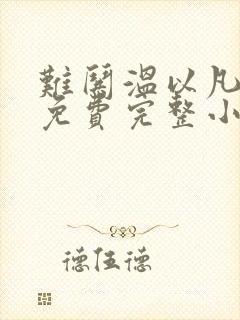 難鬨溫以凡
免費完整小
德伍德